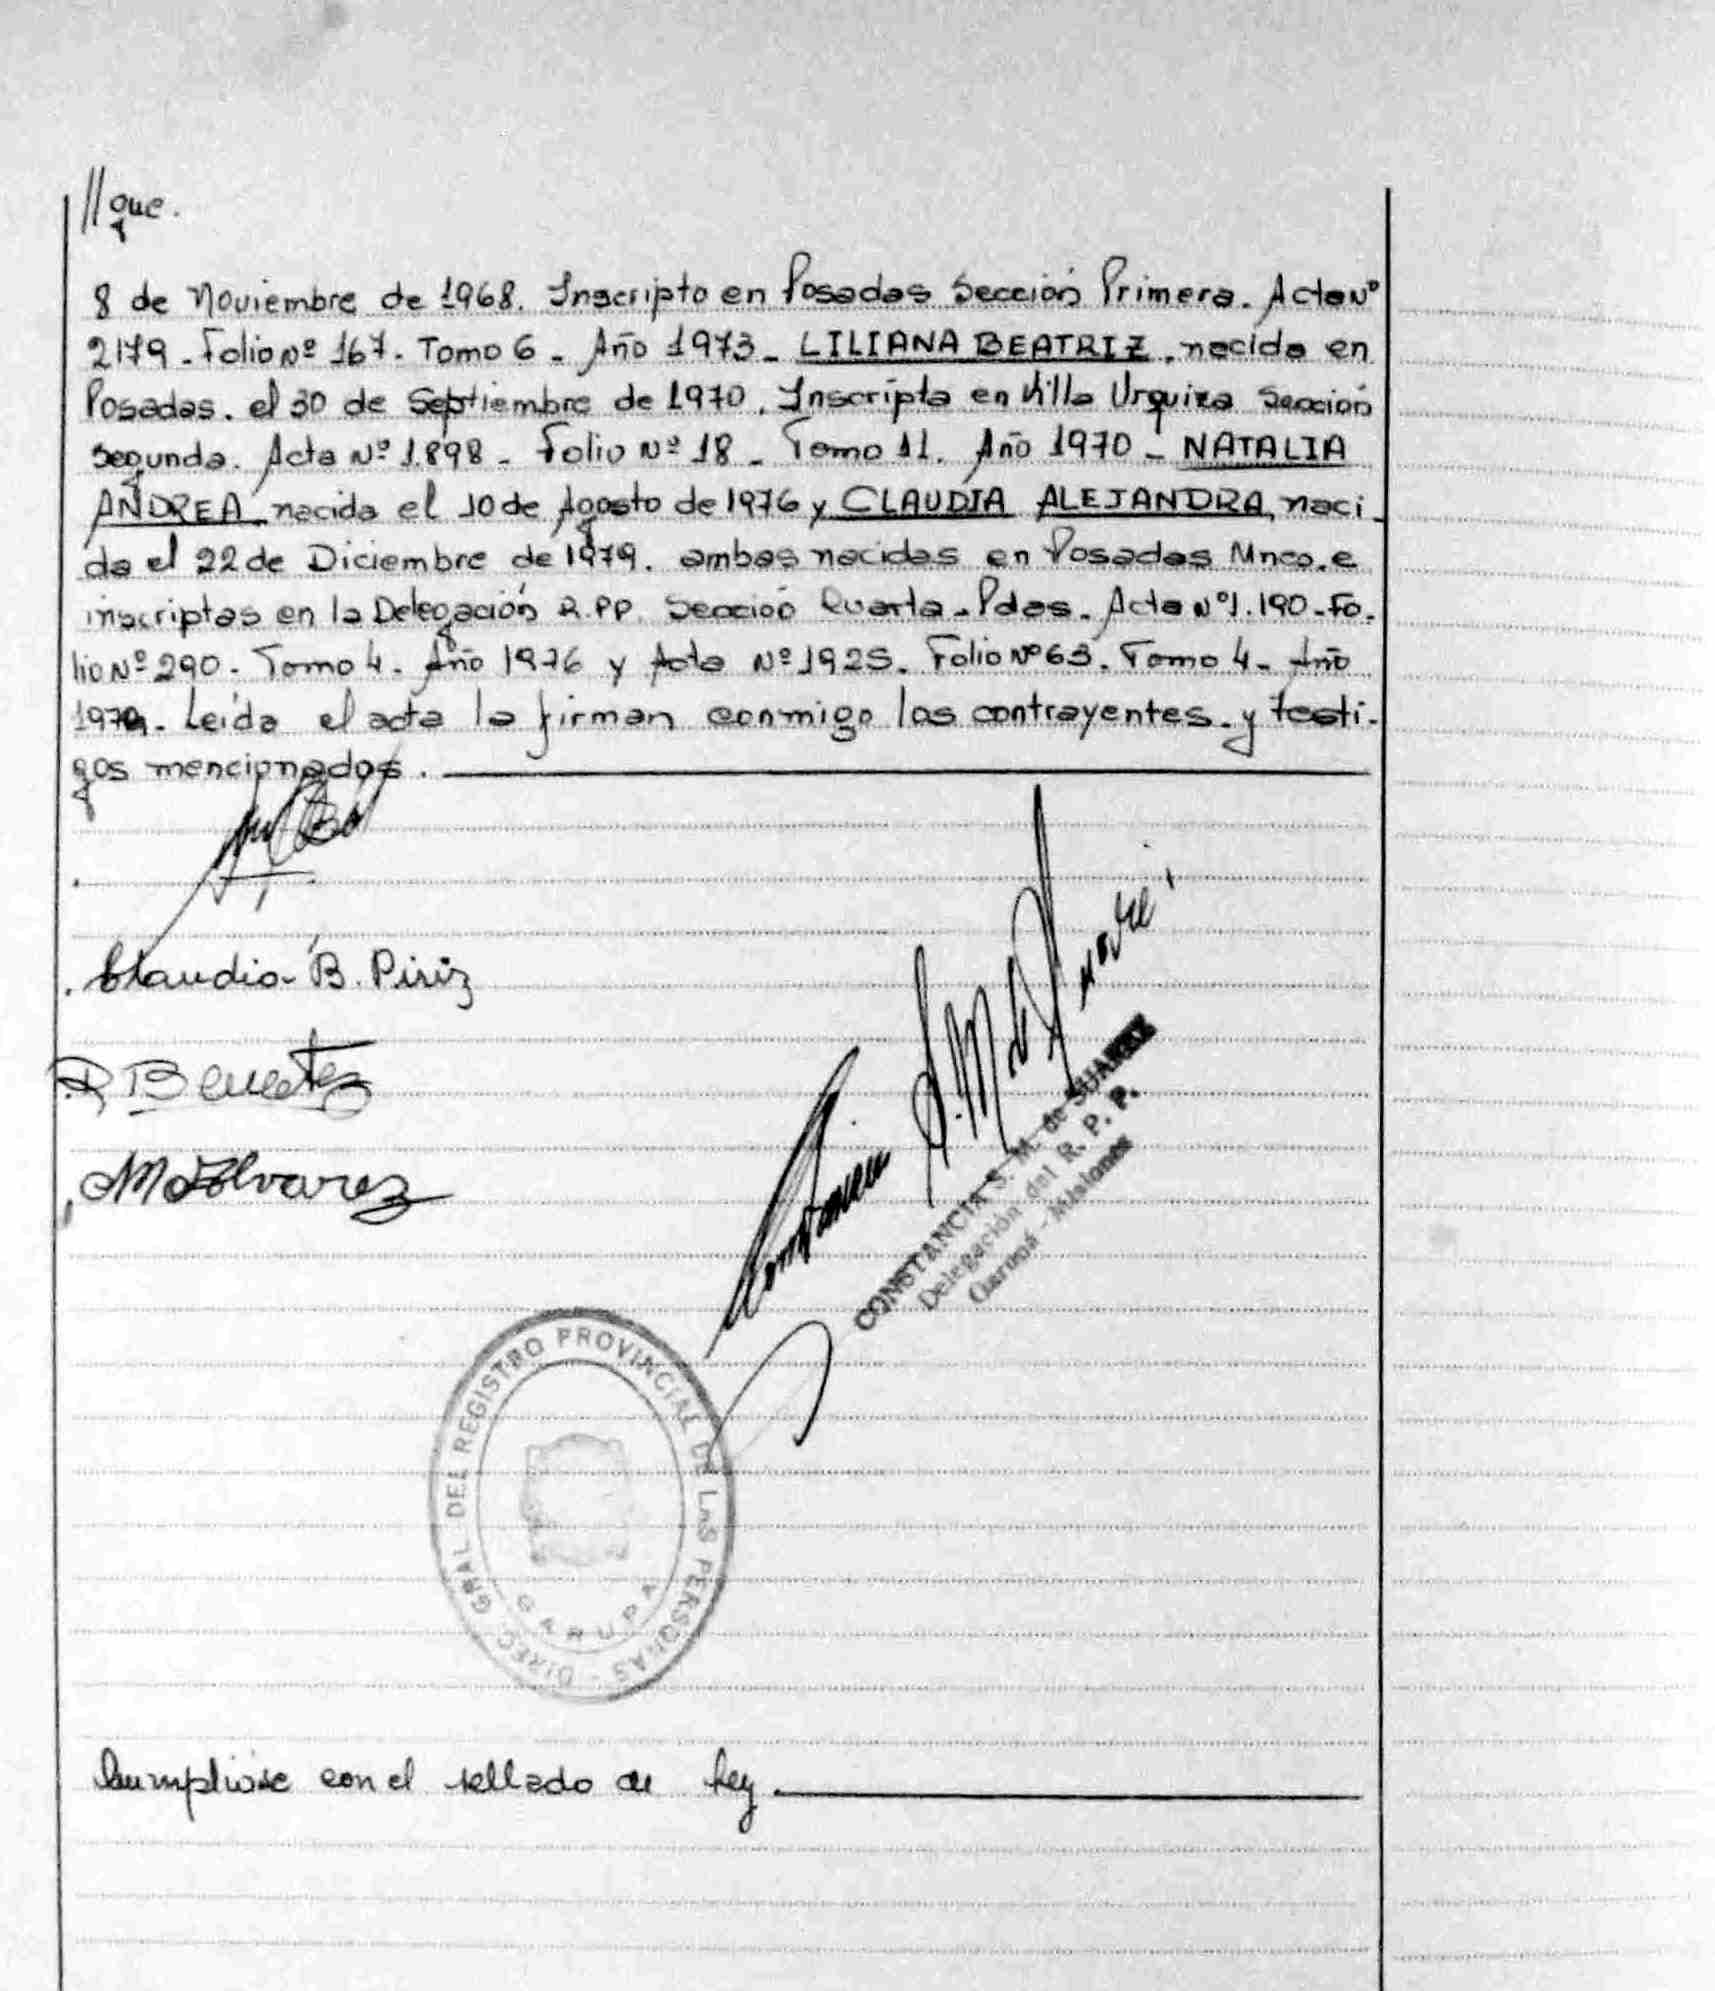 //que.
8 de Noviembre de 1968. Inscripto en Posadas Sección Primera. Acta Nº
2179 - Folio Nº 167. Tomo 6 - Año 1973 - LILIANA BEATRIZ, nacida en
Posadas. el 30 de Septiembre de 1970. Inscripta en Villa Urquiza Sección
Segunda. Acta Nº 1.898 - Folio Nº 18 - Tomo 11. Año 1970 - NATALIA
ANDREA nacida el 10 de Agosto de 1976 y CLAUDIA ALEJANDRA, naci-
da el 22 de Diciembre de 1979. ambas nacidas en Posadas Mnes. e
inscriptas en la Delegación R.PP. Sección Cuarta - Pdas. Acta Nº 1.190 - Fo-
lio Nº 290 - Tomo 4 - Año 1976 y Acta Nº 1925. Folio Nº 63. Tomo 4 - Año
1979. Leída el acta la firman conmigo los contrayentes. y testi-
gos mencionados.
Claudia B. Piriz
R Benitez
M Alvarez
Constancia S. M. de
CONSTANCIA S. M. de SUAREZ
Delegación del R. P. P.
Garupá - Misiones
DIREC. GRAL DEL REGISTRO PROVINCIAL DE LAS PERSONAS -
GARUPA
Cumpliose con el sellado de ley